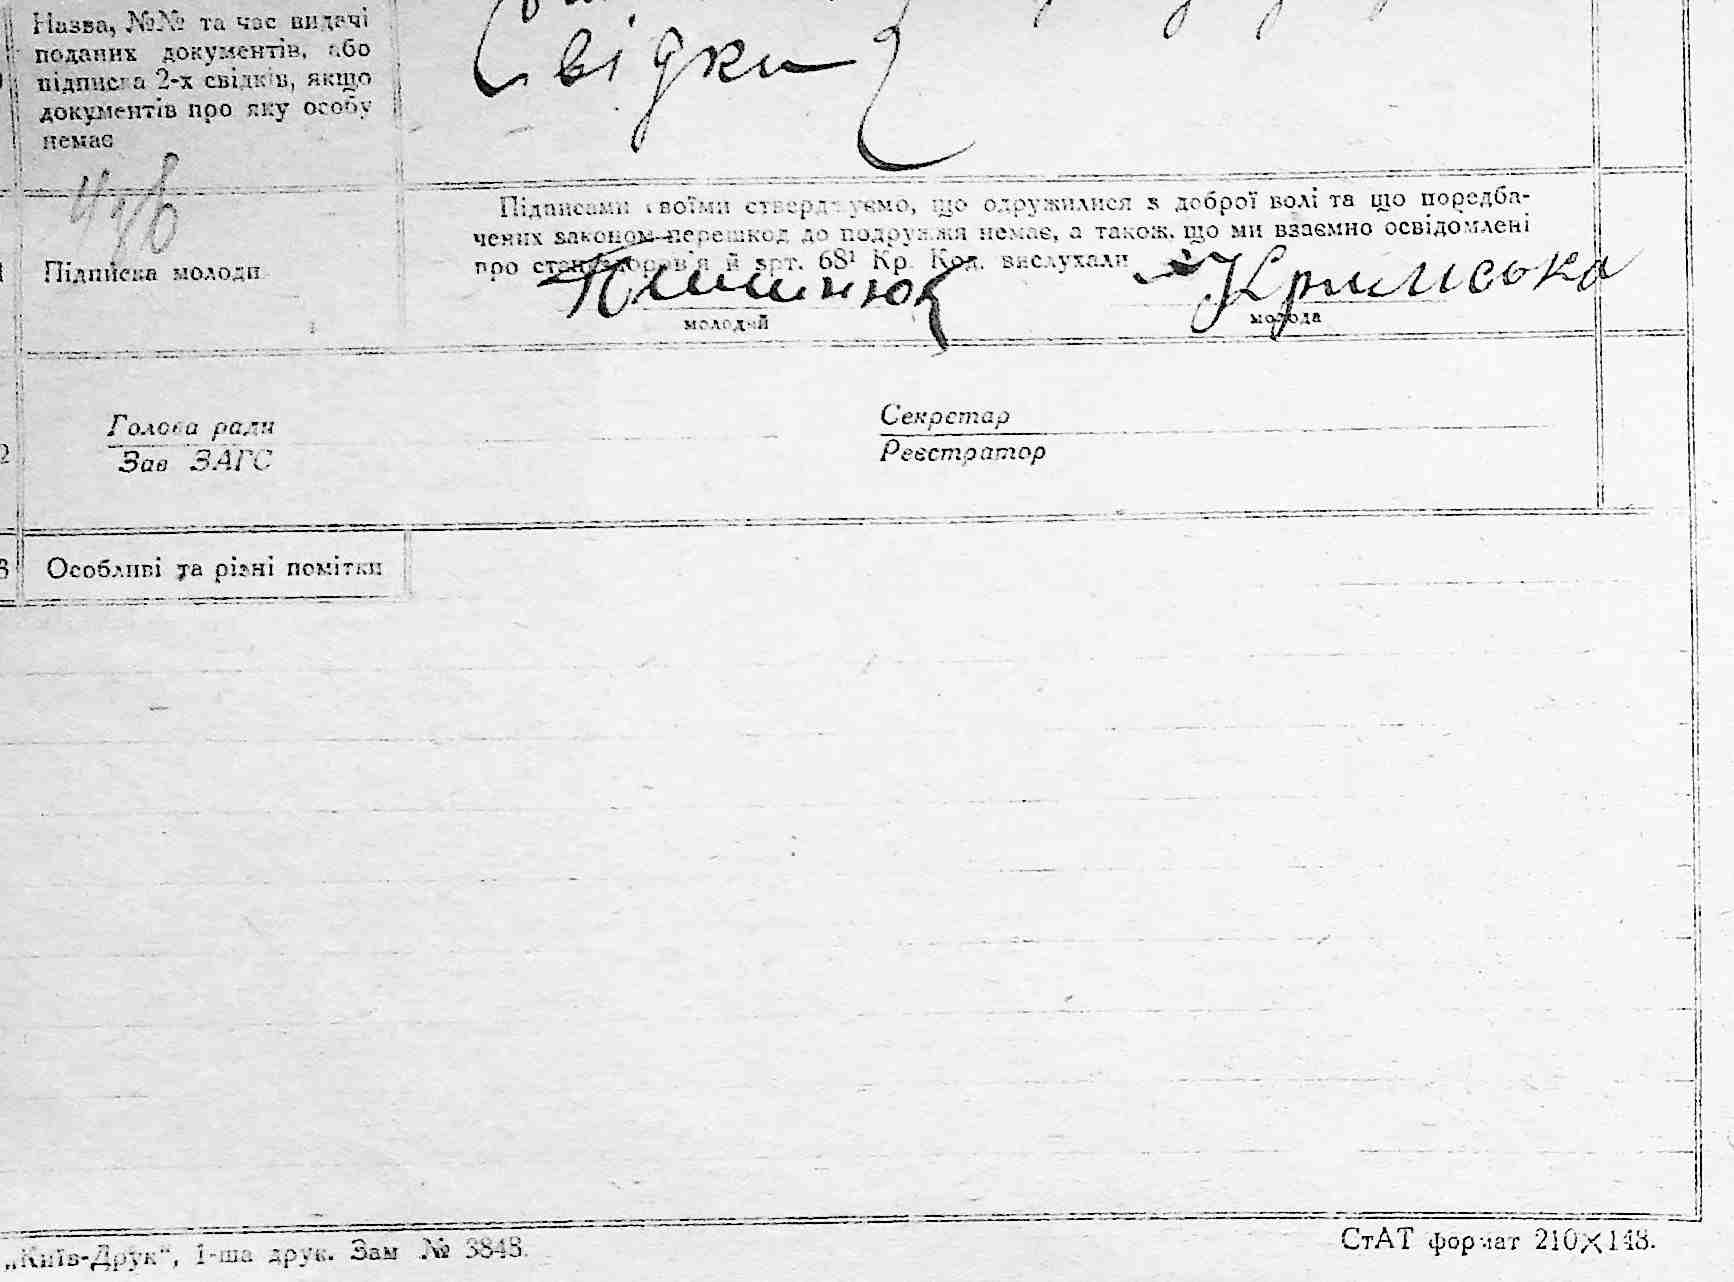 Назва, №№ та час видачі
поданих документів, або
підписка 2-х свідків, якщо
документів про яку особу
немає
Свідки
Підписка молоди
Підписами своїми стверджуємо, що одружилися з доброї волі та що передба-
чених законом перешкод до подружжя немає, а також, що ми взаємно освідомлені
про стан здоров'я й арт. 68¹ Кр. Код. вислухали
Кримська
молодий
молода
Голова ради
Зав ЗАГС
Секретар
Реєстратор
3
Особливі та різні помітки
„Київ-Друк“, 1-ша друк. Зам № 3848.
СтАТ формат 210×148.